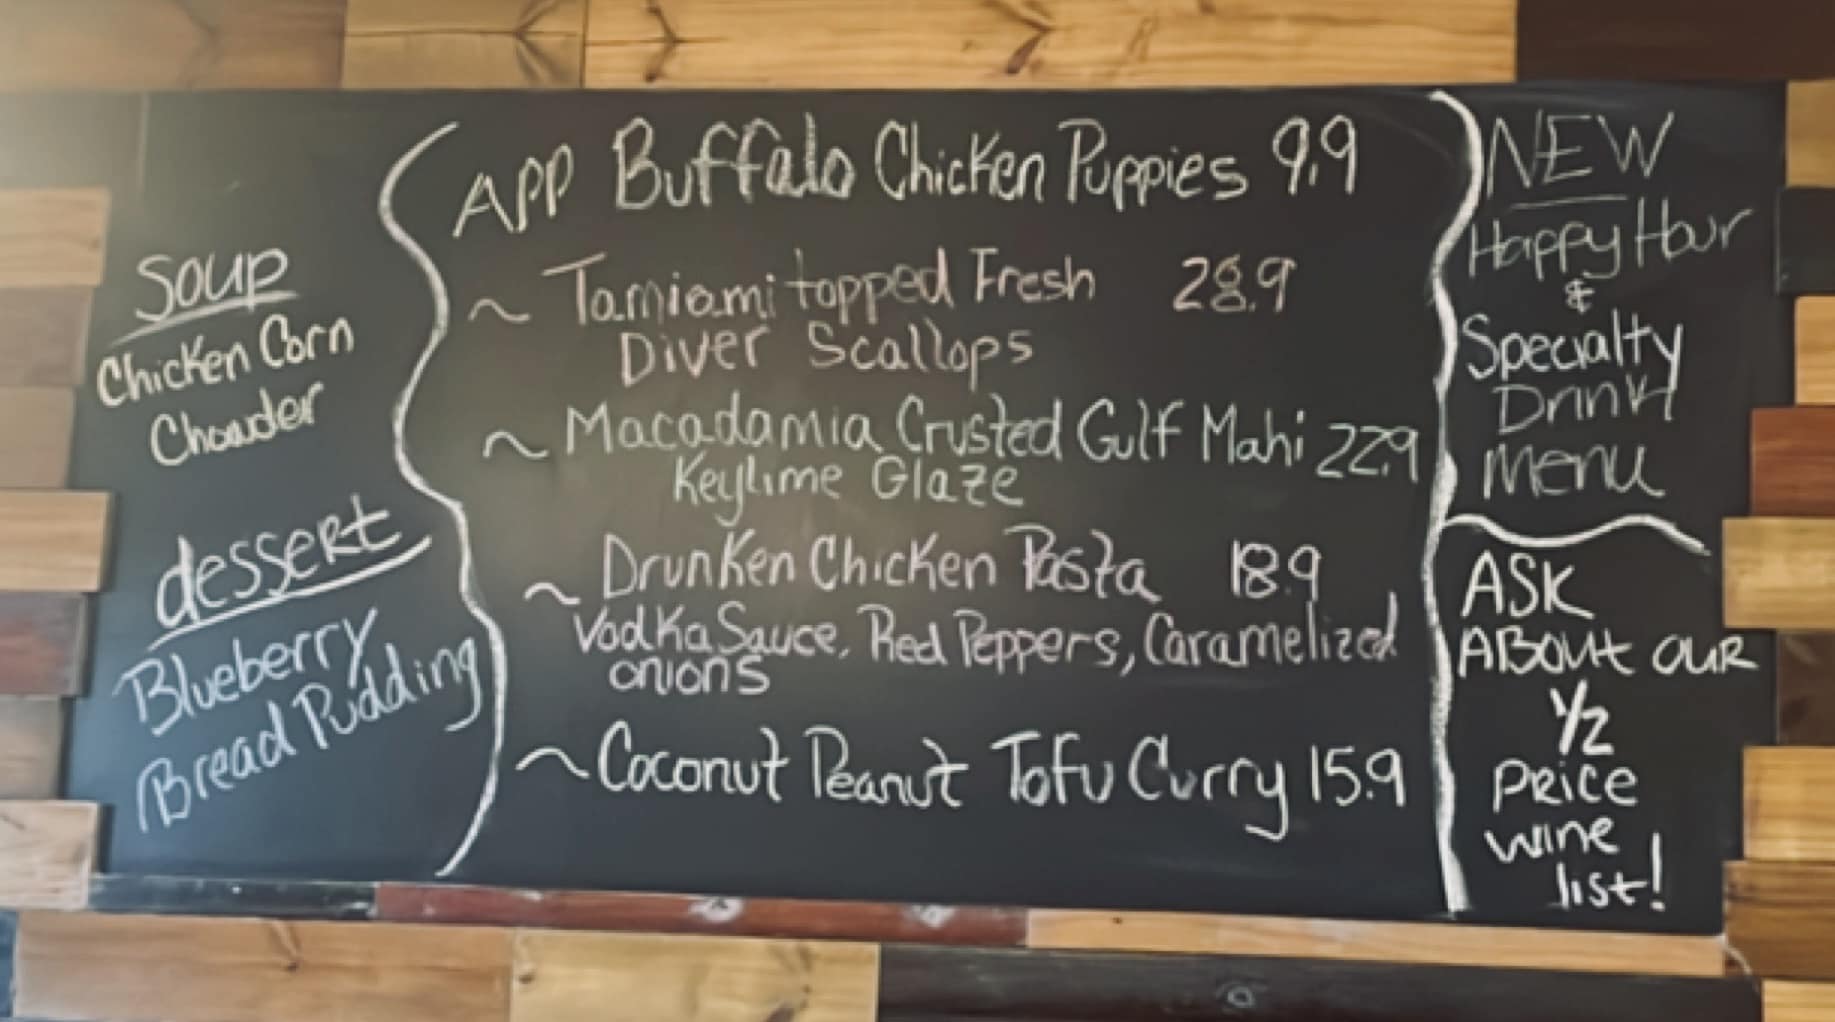 Soup
Chicken Corn
Chowder
dessert
Blueberry
Bread Pudding
APP Buffalo Chicken Puppies 9.9
~ Tamiami topped Fresh 28.9
Diver Scallops
~ Macadamia Crusted Gulf Mahi 22.9
Keylime Glaze
~ Drunken Chicken Pasta 18.9
Vodka Sauce, Red Peppers, Caramelized
onions
~ Coconut Peanut Tofu Curry 15.9
NEW
Happy Hour
&
Specialty
Drink
Menu
ASK
ABOUT OUR
1/2
Price
wine
list!